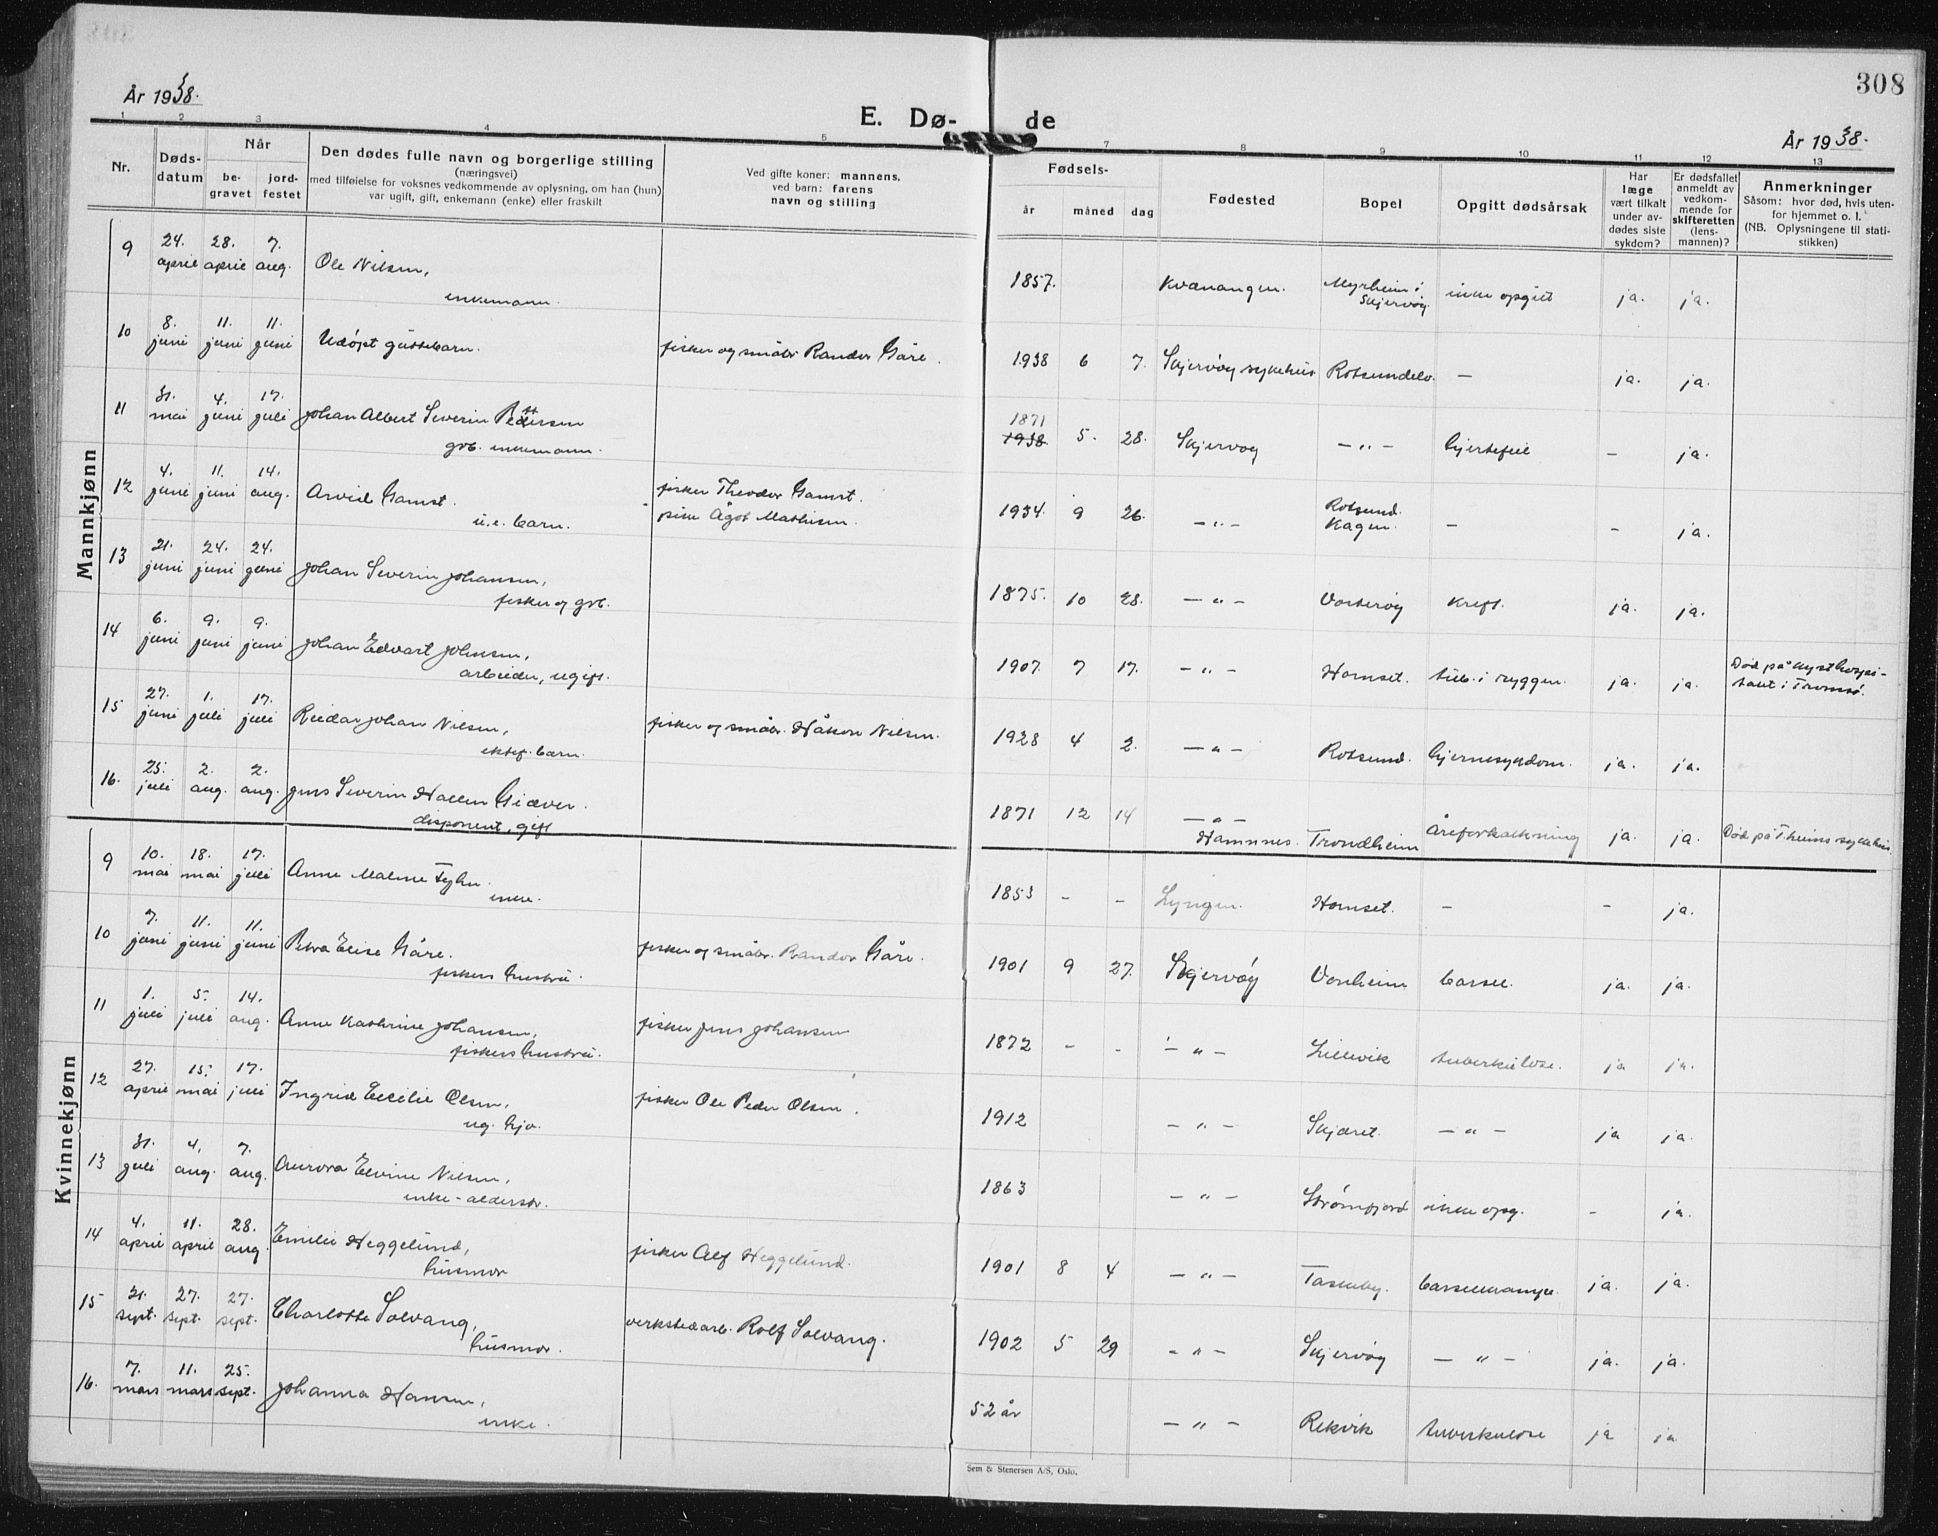 308
År 1938.
E. Dø-
de
År 1938.
1 2 3 4 5 7 8 9 10 11 12 13
Nr.
Døds-
datum
Når
be-
gravet
jord-
festet
Den dødes fulle navn og borgerlige stilling
(næringsvei)
med tilføielse for voksnes vedkommende av oplysning, om han (hun)
var ugift, gift, enkemann (enke) eller fraskilt
Ved gifte koner: mannens,
ved barn: farens
navn og stilling
Fødsels-
år måned dag
Fødested
Bopel
Opgitt dødsårsak
Har
læge
vært tilkalt
under av-
dødes siste
sykdom?
Er dødsfallet
anmeldt av
vedkom-
mende for
skifteretten
(lens-
mannen)?
Anmerkninger
Såsom: hvor død, hvis uten-
for hjemmet o. l.
(NB. Oplysningene til stati-
stikken)
Mannkjønn
9 24. april 28. april 7. aug. Ole Nilsen, 1857. Kvænangen. Myrheim i ikke opgitt ja. ja.
enkemann. Skjervøy
10 8. juni 11. juni 11. juni Udøpt guttebarn. fisker og småbr. Gåre. 1938 6 7. Skjervøy sykehus Rotsundelv. — ja. ja.
11 31. mai 4. juni 17. juli Johan Albert Severin Pedersen 1871 1938 5. 28. Skjervøy — " — hjertefeil - ja.
grb. enkemann.
12 4. juni 11. juni 14. aug. Arvid Gamst. fisker Theodor Gamst. 1934. 9 26. — " — Rotsund. - - ja.
u.e. barn. pike Ågot Mathisen. Kagen.
13 21. juni 24. juni 24. juni Johan Severin Johansen, 1875. 10 28. — " — Vorterøy kreft. ja. ja.
fisker og grb.
14 6. juni 9. juni 9. juni Johan Edvart Johnsen, 1907. 7 17. — " — Hamset. tub. i ryggen. ja. ja. Død på kysthospi-
arbeider, ugift. talet i Tromsø.
15 27. juni 1. juli 17. juli Reidar Johan Nilsen, fisker og småbr. Håkon Nilsen. 1928 4 2. — " — Rotsund. hjernesykdom. ja. ja.
ektef. barn.
16. 25. juli 2. aug. 2. aug. Jens Severin Hallen Giæver. 1871 12 14 — " — Hamnnes. Trondheim åreforkalkning ja. ja. Død på T.heims sykehus.
disponent, gift
Kvinnekjønn
9 10. mai 18. mai 17. juli Anne Malene 1853 - - Lyngen. Hamset. - - ja.
enke.
10 7. juni 11. juni 11. juni Petra Elise Gåre. fisker og småbr. Gåre. 1901 9 27. Skjervøy barsel. ja. ja.
fiskers hustru.
11 1. juli 5. juli 14. aug. Anne Kathrine Johansen, fisker Jens Johansen 1872 - - — " — Lillevik tuberkulose. ja ja.
fiskers hustru.
12 27. april 15. mai 17. juli Ingrid Cecilie Olsen, fisker Ole Peder Olsen. 1912 — " — Skjæret. — " — ja ja.
ug. hjv.
13 31. juli 4. aug. 7. aug. Aurora Elvine Nilsen, 1863 — " — Strømfjord ikke opg. - ja.
enke - alderstr.
14 4. april 11. april 28. aug. Emilie Heggelund, fisker Alf Heggelund. 1901 8 4 — " — Taskeby. barselkrampe. ja. ja.
husmor
15 21. sept. 27. sept. 27. sept. Charlotte Solvang, verkstedarb. Rolf Solvang. 1902 5 29 — " — Skjervøy — " — ja. ja.
husmor.
16. 7. mars 11. mars 25. sept. Johanna Hansen, 52 år — " — Rekvik tuberkulose ja ja
enke.
Sem & Stenersen A/S, Oslo.